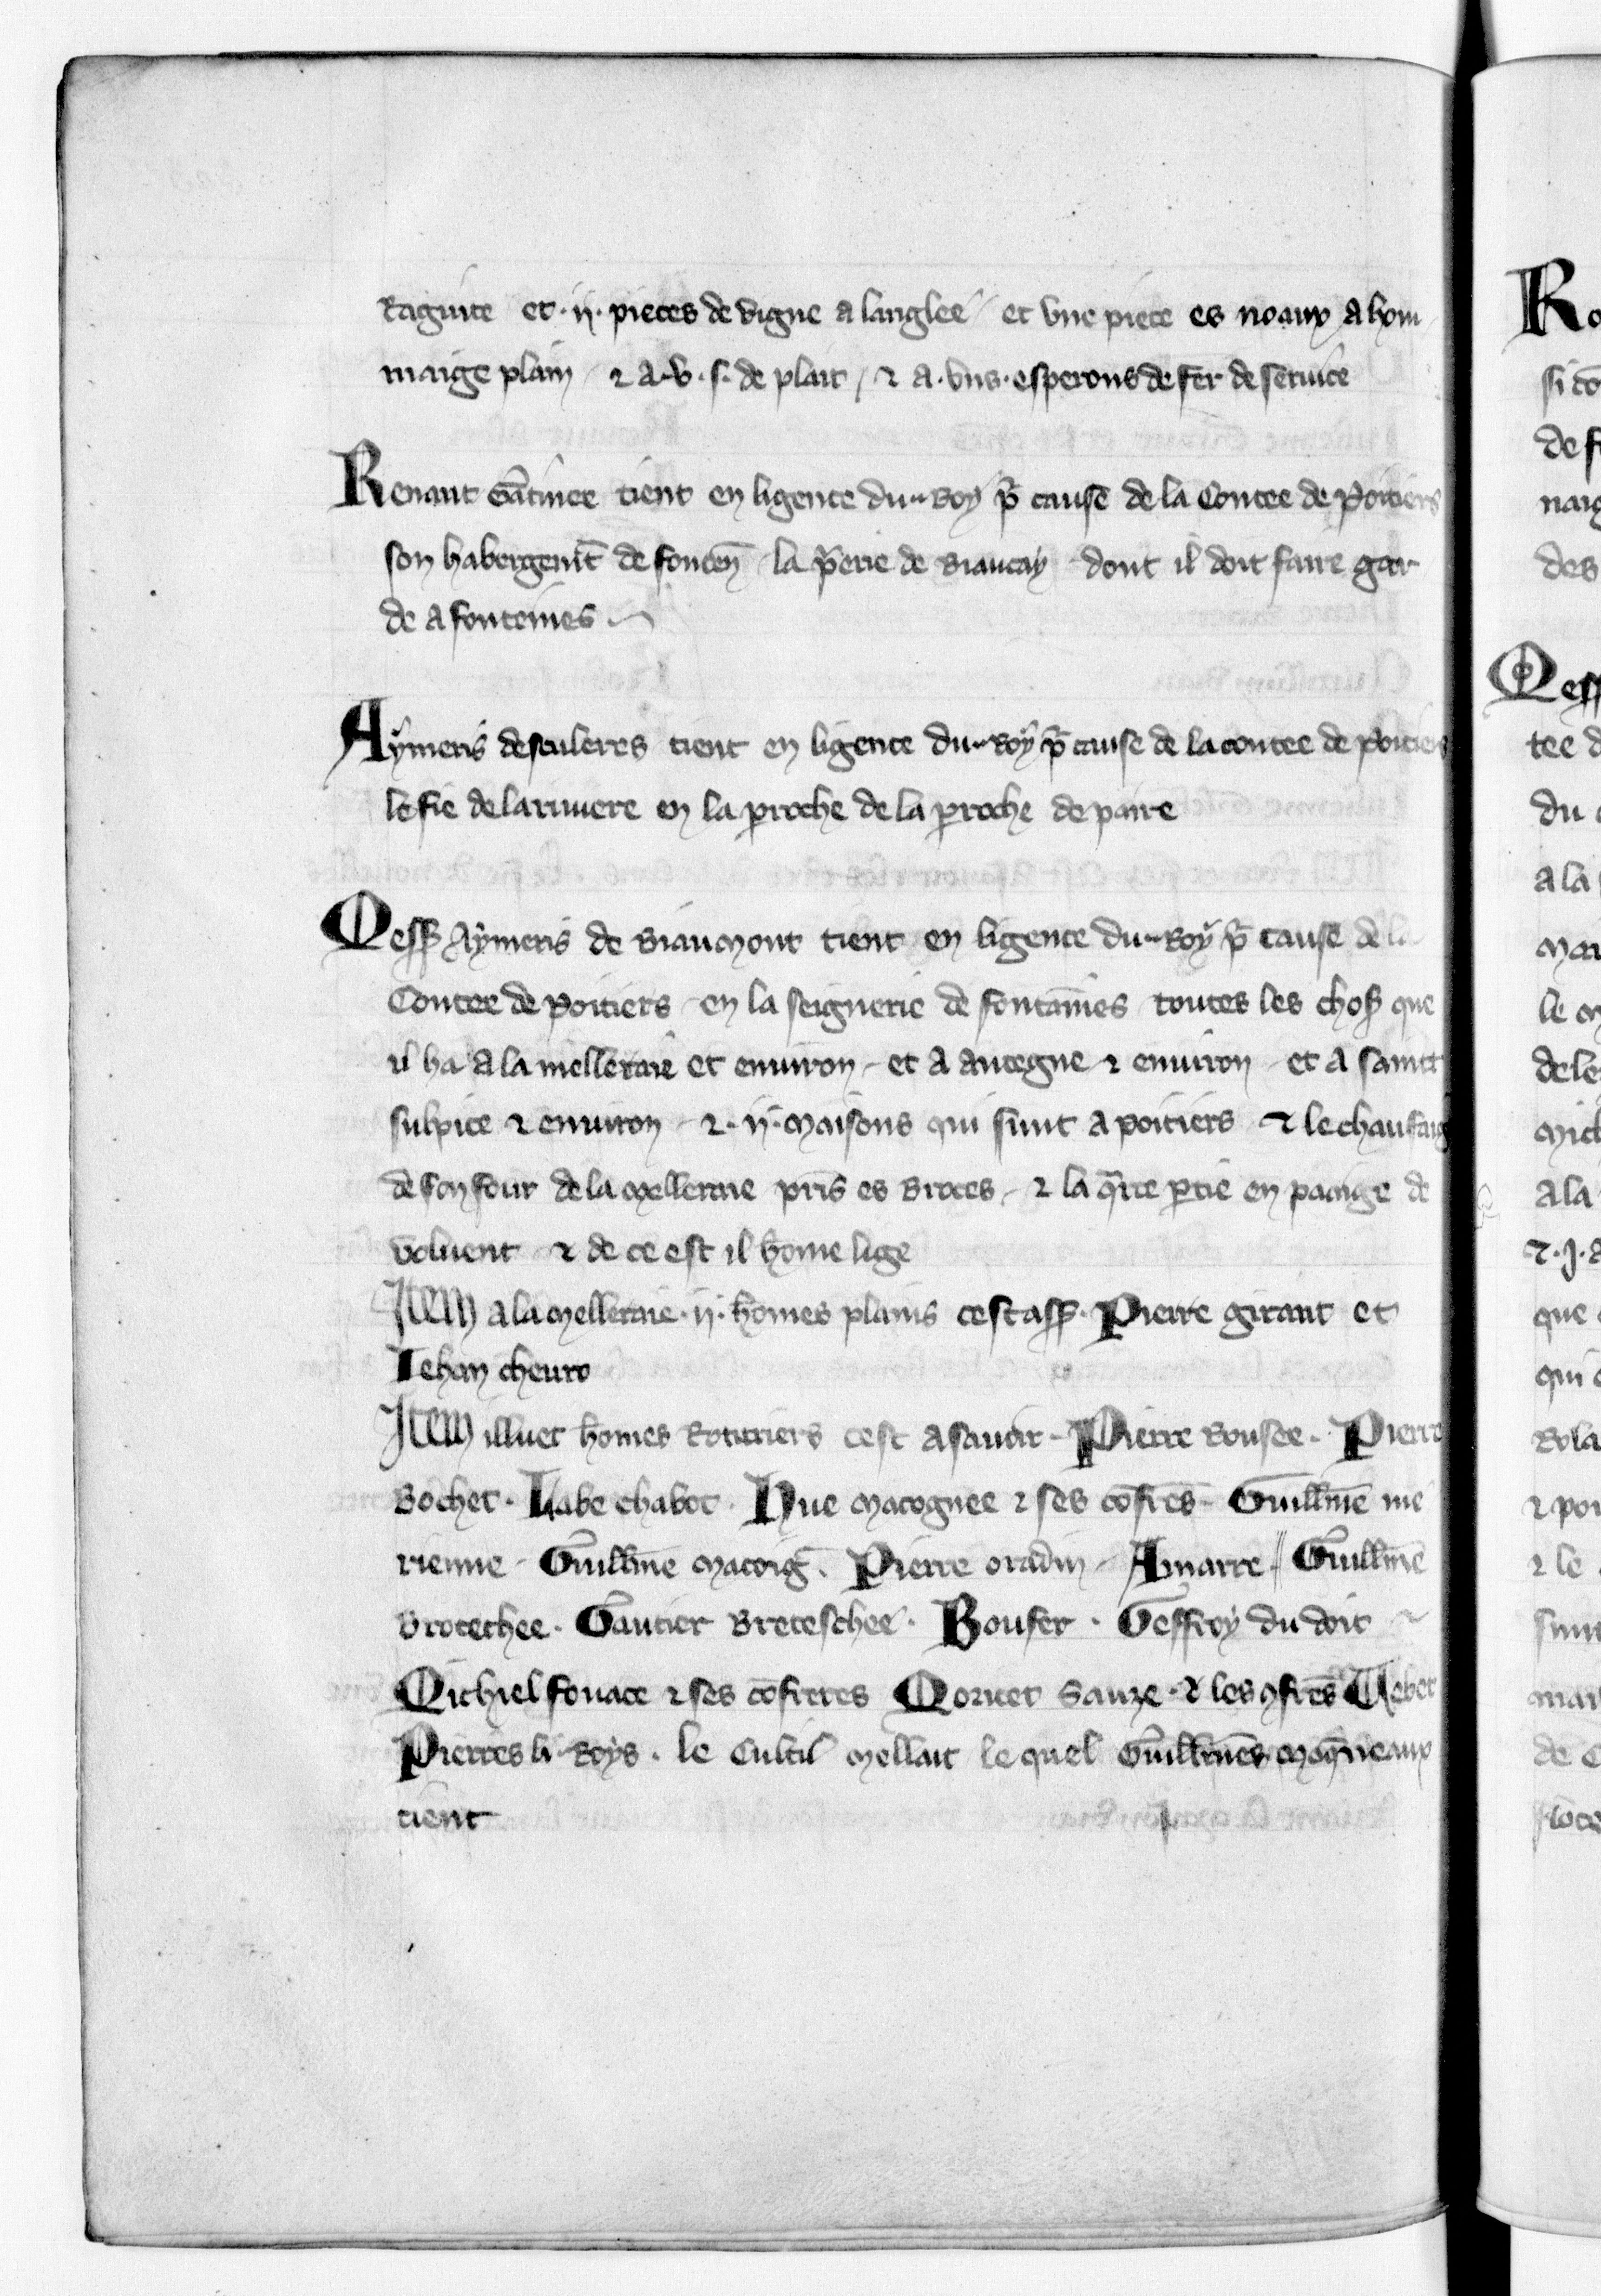 Raguite et .ii. pieces de vigne a langlee et vne piece es noaux a hom
maige plain & a .v. s. de plait, & a .vns. esperons de fer de seruice
Renaut Gatinee tient en ligence du Roy pr cause de la Contee de Poitiers
son habergemt de fonten la perie de Biaucay dont il doit faire gar
de a fontenies
Aymeris desculeres tient en ligence du Roy pr cause de la contee de Poitiers
le fie de la riuiere en la proche de la proche de paire
Mess Aymeris de Biaumont tient en ligence du Roy pr cause de la
Contee de Poitiers en la seignerie de fontanies toutes les chos que
il ha a la melleraie et enuiron et a antegne & enuiron et a saint
sulpice & enuiron & .ii. maisons qui sunt a poitiers & le chaufaig
de son four de la melleraie pris es Broces & la qrte ptie en pacaige de
voluent & de ce est il home lige
Item a la melleraie .ii. homes plains cest ass. Pierre giraut et
Jehan cheuro
Item illuec homes Roturiers cest asauoir Pierre Rousee. Pierre
Bochet. Labe chabot. Hue macognee & ses cofres Guillme me
rienne Guillme macoig. Pierre oradin Amarre Guillme
Brotechee. Gautier Breteschee. Boufer. Geffroy du doit &
Michiel fouace & ses cofreres Moruet Sauze & les 9fres Tebet
Pierres li Roys. le Cultil mellait le quel Guillmes moqneaux
tient